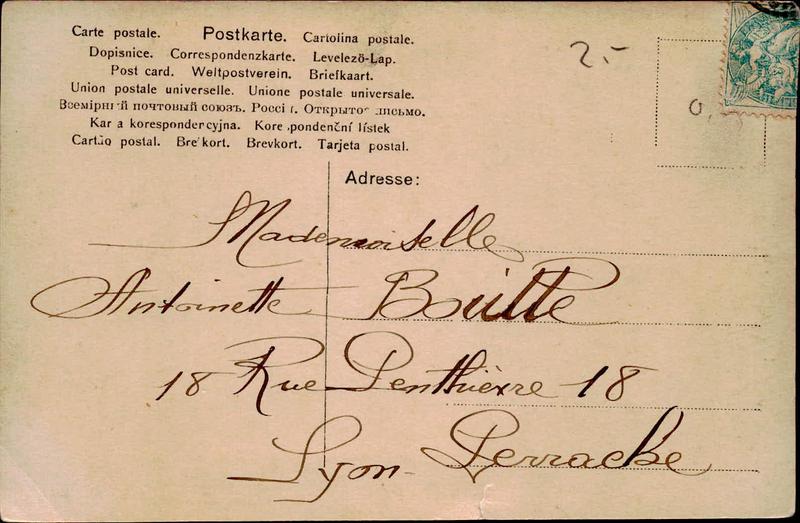 Carte postale. Postkarte. Cartolina postale.
Dopisnice. Correspondenzkarte. Levelező-Lap.
Post card. Weltpostverein. Briefkaart.
Union postale universelle. Unione postale universale.
почтовый союзъ.
korespondencyjna. lístek
postal. Brevkort. Tarjeta postal.
2.-
Adresse:
Mademoiselle
Antoinette Boitte
18 Rue Penthièvre 18
Lyon Perrache